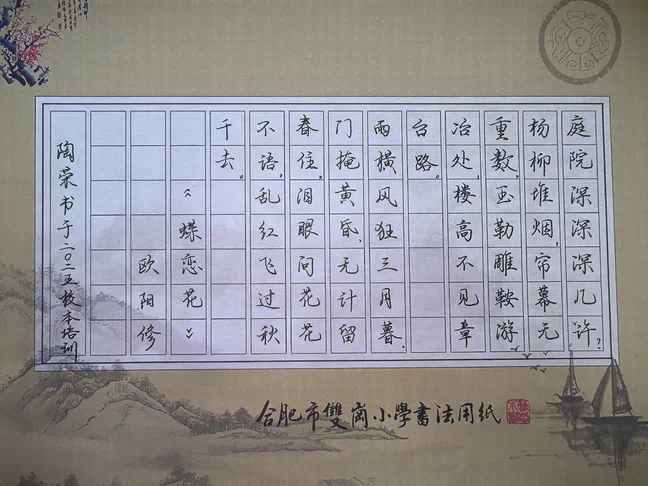 庭院深深深几许？
杨柳堆烟，帘幕无
重数。玉勒雕鞍游
冶处，楼高不见章
台路。
雨横风狂三月暮，
门掩黄昏，无计留
春住。泪眼问花花
不语，乱红飞过秋
千去。
《蝶恋花》
欧阳修
陶荣书于二〇一五校本培训
合肥市雙崗小學書法用紙